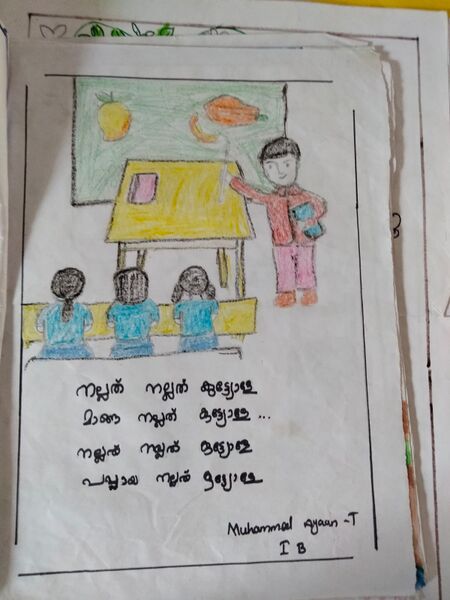 നല്ലത് നല്ലത് കുട്ട്യോളേ
മാങ്ങ നല്ലത് കുട്ട്യോളേ ...
നല്ലത് നല്ലത് കുട്ട്യോളേ
പപ്പായ നല്ലത് കുട്ട്യോളേ
Muhammed Ayaan -T
I B